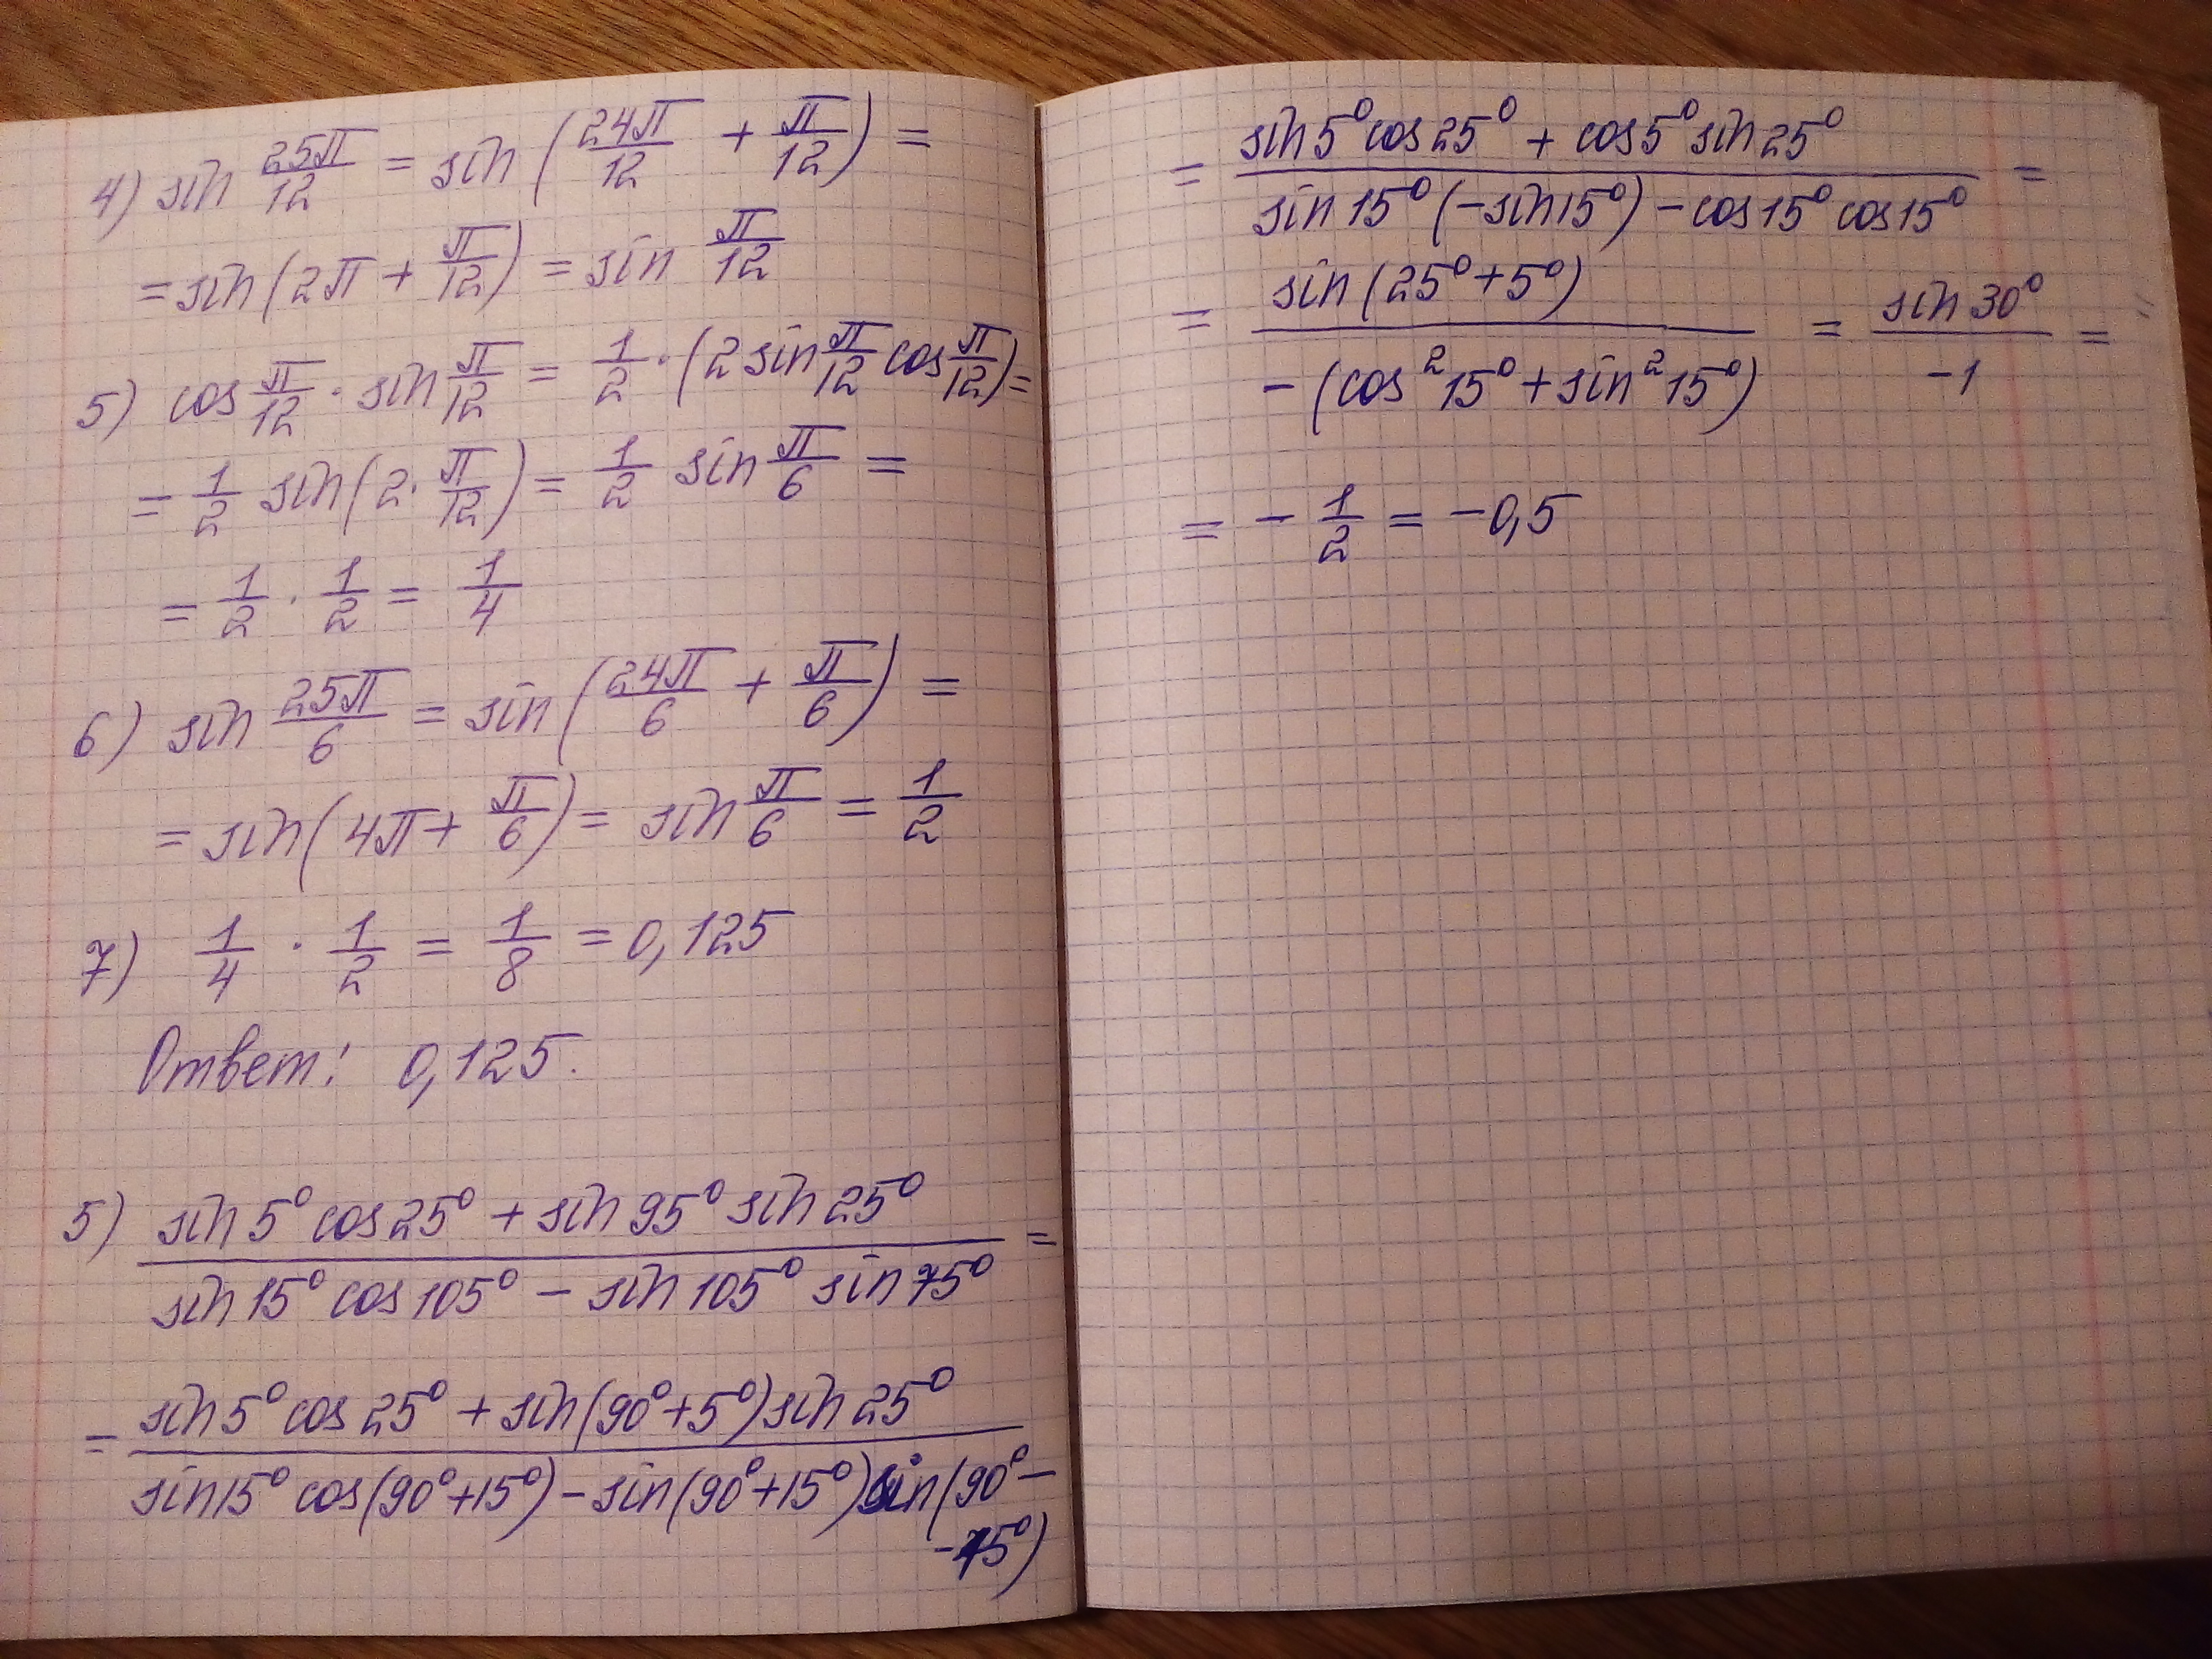 4) sin 25π/12 = sin (24π/12 + π/12) =
= sin(2π + π/12) = sin π/12
5) cos π/12 · sin π/12 = 1/2 · (2 sin π/12 cos π/12) =
= 1/2 sin(2 · π/12) = 1/2 sin π/6 =
= 1/2 · 1/2 = 1/4
6) sin 25π/6 = sin (24π/6 + π/6) =
= sin(4π + π/6) = sin π/6 = 1/2
7) 1/4 · 1/2 = 1/8 = 0,125
Ответ: 0,125.
5) (sin 5° cos 25° + sin 95° sin 25°)/(sin 15° cos 105° - sin 105° sin 75°) =
= (sin 5° cos 25° + sin(90°+5°) sin 25°)/(sin 15° cos(90°+15°) - sin(90°+15°) sin(90°-
-15°))
= (sin 5° cos 25° + cos 5° sin 25°)/(sin 15° (-sin 15°) - cos 15° cos 15°) =
= sin(25°+5°)/(-(cos² 15° + sin² 15°)) = sin 30°/-1 =
= - 1/2 = -0,5